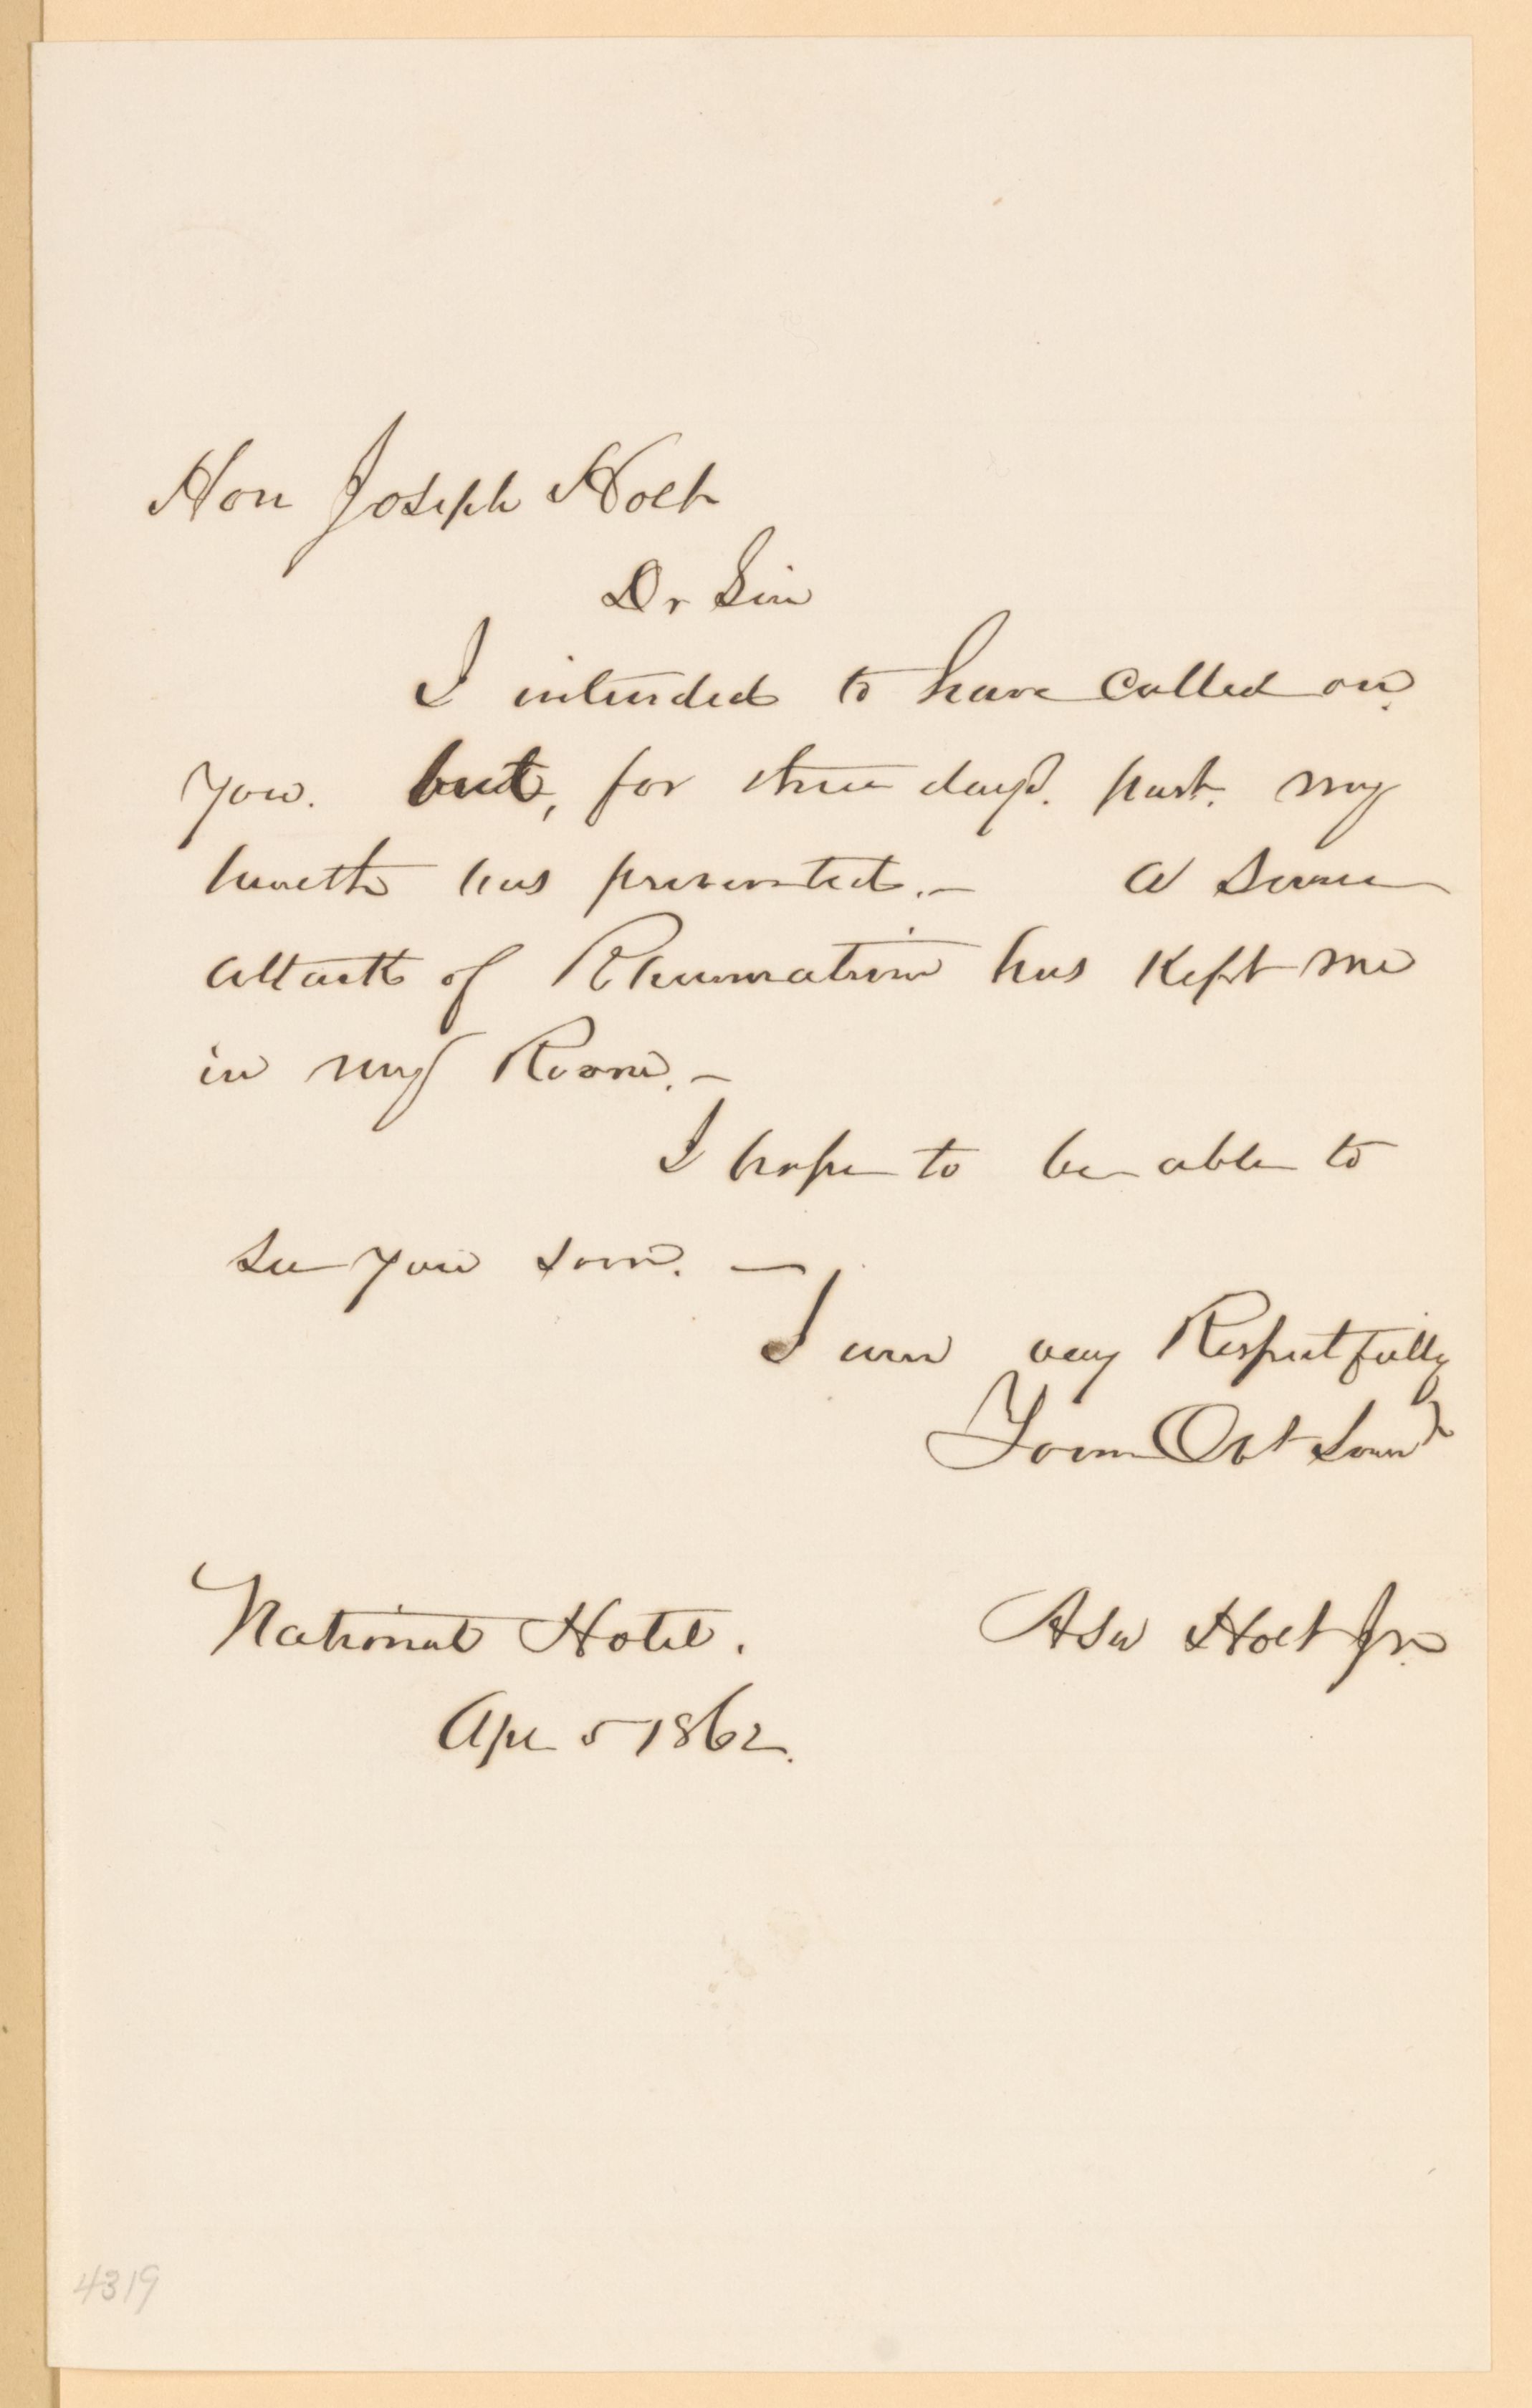 Hon Joseph Holt
Dr Sir
I intended to have called on
you. but, for three days. past. my
health has prevented. — A severe
attack of Rheumatism has kept me
in my Room. —
I hope to be able to
see you soon. —
I am very Respectfully
Your Obt Servt
National Hotel. Asa Holt Jr.
Apl 5 1862.
4319